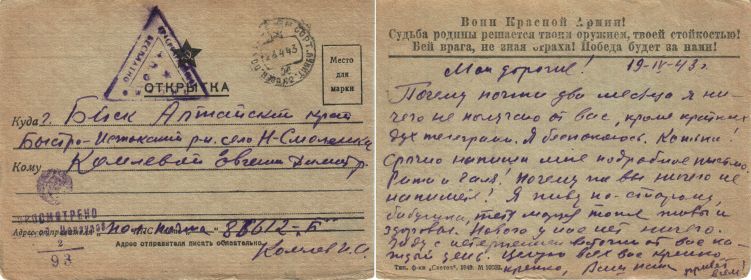 КРАСНОАРМЕЙСКОЕ
БЕСПЛАТНО
4.43
ОТКРЫТКА
Место
для
марки
Куда г. Бийск Алтайский край
Быстро-Истокский р-н. село Н-Смоленка
Кому Комлевой Евгении Дмитр.
ПРОСМОТРЕНО
Военной Цензурой
2
93
Адрес отправителя пол. почта 88612 "Б"
Адрес отправителя писать обязательно.
Комлев И.
Воин Красной Армии!
Судьба родины решается твоим оружием, твоей стойкостью!
Бей врага, не зная страха! Победа будет за нами!
Мои дорогие! 19-IV-43 г.
Почему почти два месяца я ни-
чего не получаю от вас, кроме крайних
двух телеграмм. Я беспокоюсь.
Срочно напиши мне подробное письмо.
и Галя! Почему же вы ничего не
напишете! Я живу по-старому,
бабушка, тетя Маруся тоже живы и
здоровы. Нового у нас нет ничего.
Жду с нетерпением весточки от вас ка-
ждый день. Целую всех вас крепко,
крепко. Ваш папа
привет всем!
Тип. ф-ки „Светоч“. 1942. М